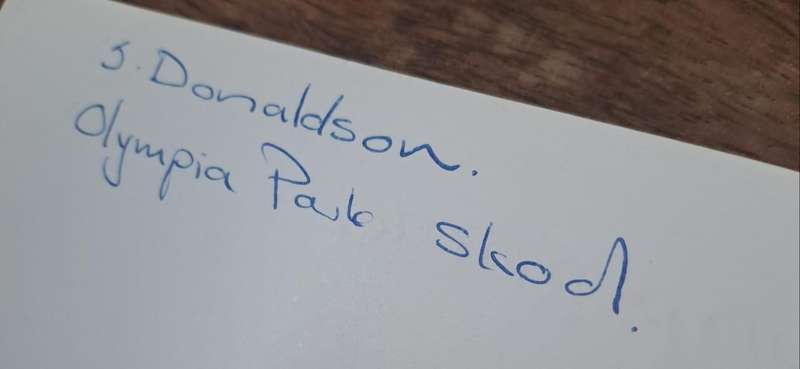 J. Donaldson.
Olympia Park Skool.